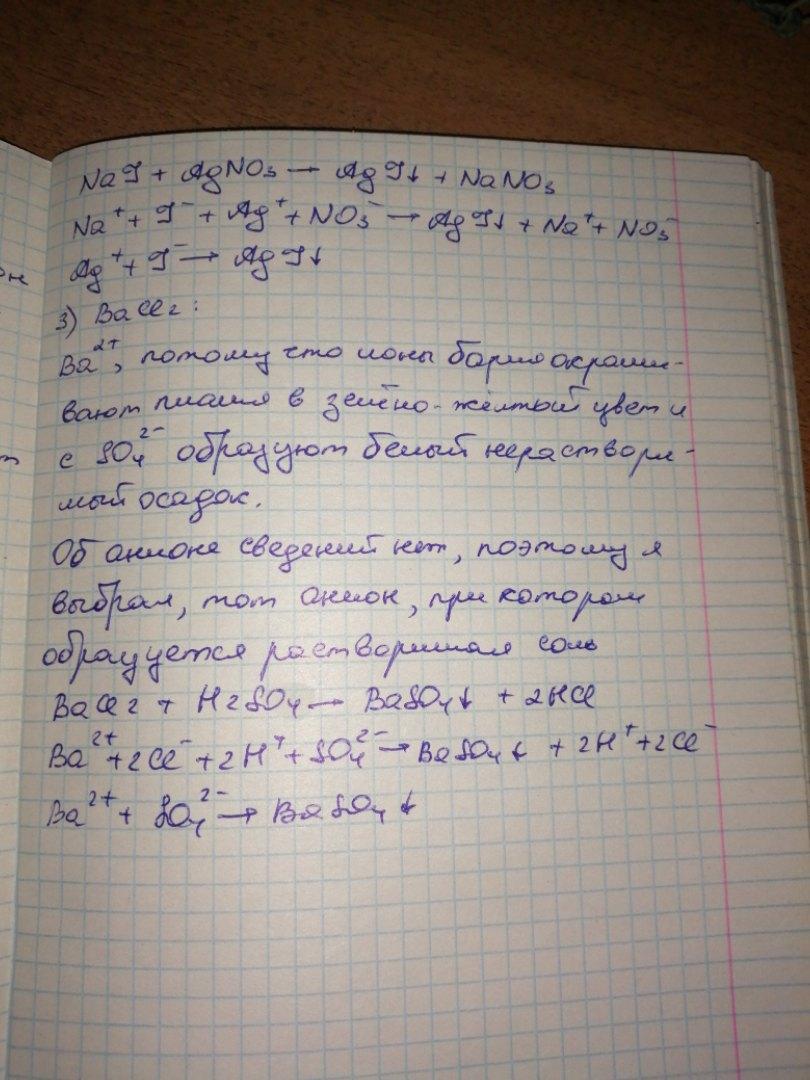 NaI + AgNO₃ → AgI↓ + NaNO₃
Na⁺ + I⁻ + Ag⁺ + NO₃⁻ → AgI↓ + Na⁺ + NO₃⁻
Ag⁺ + I⁻ → AgI↓
3) BaCl₂ :
Ba²⁺, потому что ионы бария окраши-
вают пламя в зелёно-жёлтый цвет и
с SO₄²⁻ образуют белый нераствори-
мый осадок.
Об анионе сведений нет, поэтому я
выбрал, тот анион, при котором
образуется растворимая соль
BaCl₂ + H₂SO₄ → BaSO₄↓ + 2HCl
Ba²⁺ + 2Cl⁻ + 2H⁺ + SO₄²⁻ → BaSO₄↓ + 2H⁺ + 2Cl⁻
Ba²⁺ + SO₄²⁻ → BaSO₄↓